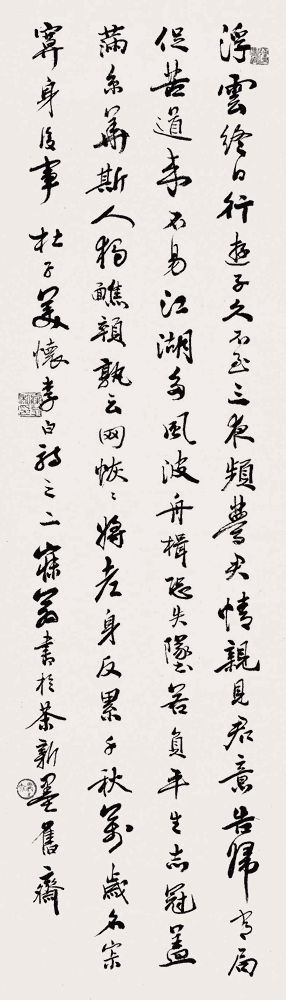 浮雲終日行遊子久不至三夜頻夢君情親見君意告歸常局
促苦道來不易江湖多風波舟楫恐失墜若負平生志冠蓋
滿京華斯人獨醮顇孰云網恢〻將老身反累千秋萬歲名寂
寞身後事 杜子美懷李白詩之二 寐翁書於茶新墨舊齋